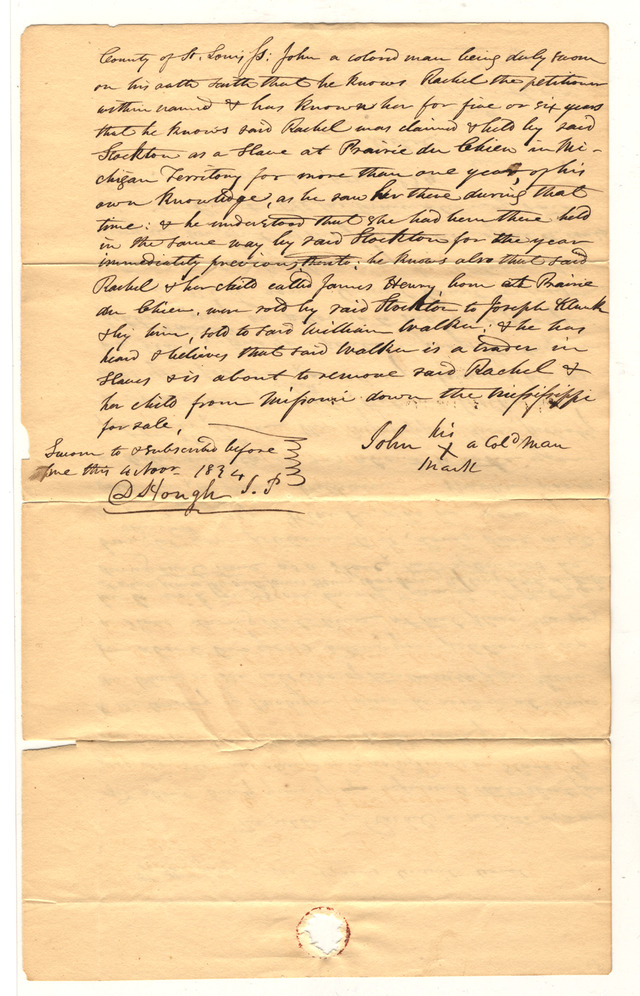 County of St. Louis ss: John a colored man being duly sworn
on his oath saith that he knows Rachel the petitioner
within named & has known her for five or six years
that he knows said Rachel was claimed & held by said
Stockton as a Slave at Prairie du Chien in Mi-
chigan Territory for more than one year, of his
own Knowledge, as he saw her there during that
time: & he understood that she had been there held
in the same way by said Stockton for the year
immediately previous thereto; he knows also that said
Rachel & her child called James Henry, born at Prairie
du Chien, were sold by said Stockton to Joseph Klunk
& by him, sold to said William Walker; & he has
heard & believes that said Walker is a trader in
Slaves & is about to remove said Rachel &
her child from Missouri down the Mississippi
for sale,
John his X mark a Cold man
Sworn to & subscribed before
me this 4 Novr 1834
D Hough J. P